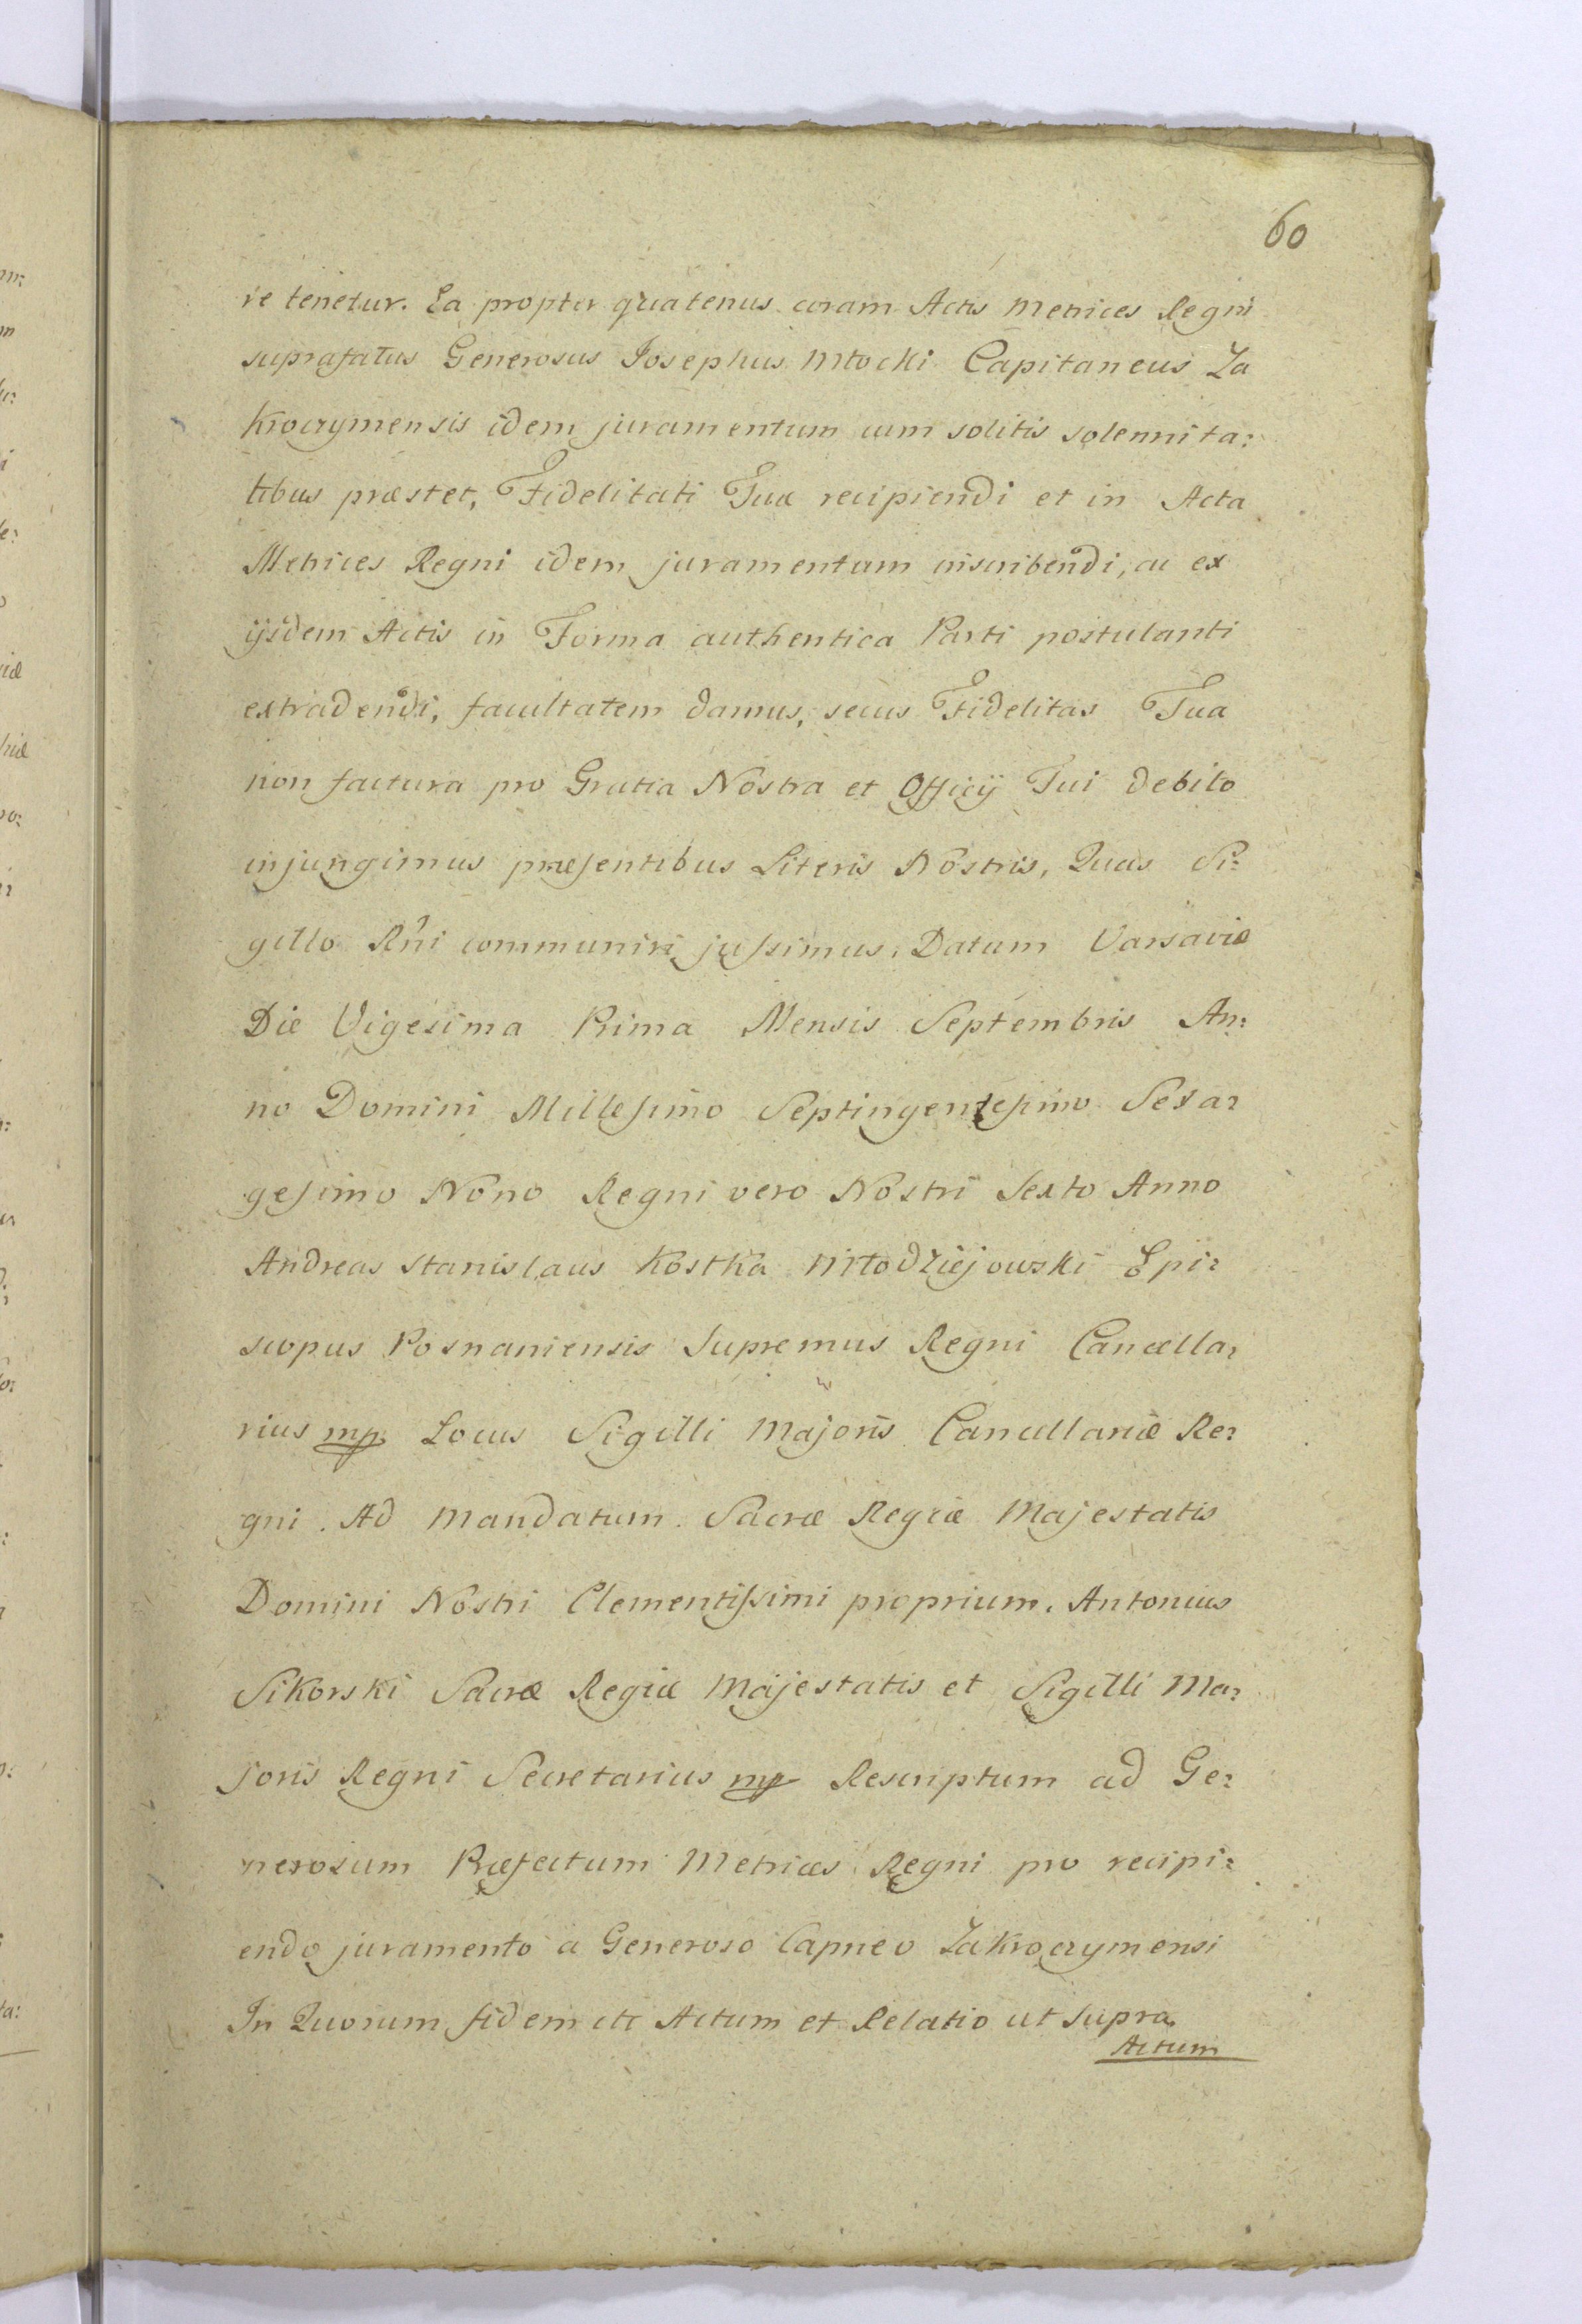 60
re tenetur. Ea propter quatenus coram Actis Metrices Regni
suprafatus Generosus Josephus Młocki Capitaneus Za
kroczymensis idem juramentum cum solitis solennita:
tibus præstet, Fidelitati Tuæ recipiendi et in Acta
Metrices Regni idem juramentum inscribendi, ac ex
ijsdem Actis in Forma authentica Parti postulanti
extradendi, facultatem damus, secus Fidelitas Tua
non factura pro Gratia Nostra et Officij Tui debito
injungimus præsentibus Literis Nostris, Quas Si:
gillo Rni communiri jussimus. Datum Varsaviæ
Die Vigesima Prima Mensis Septembris An:
no Domini Millesimo Septingentesimo Sexa:
gesimo Nono Regni vero Nostri Sexto Anno
Andreas Stanislaus Kostka Młodziejowski Epi:
scopus Posnaniensis Supremus Regni Cancella:
rius mp Locus Sigilli Majoris Cancellariæ Re:
gni. Ad Mandatum Sacræ Regiæ Majestatis
Domini Nostri Clementissimi proprium. Antonius
Sikorski Sacræ Regiæ Majestatis et Sigilli Ma:
joris Regni Secretarius mp Rescriptum ad Ge:
nerosum Præfectum Metrices Regni pro recipi:
endo juramento a Generoso Capneo Zakroczymensi
In Quorum fidem etc Actum et Relatio ut supra
Actum